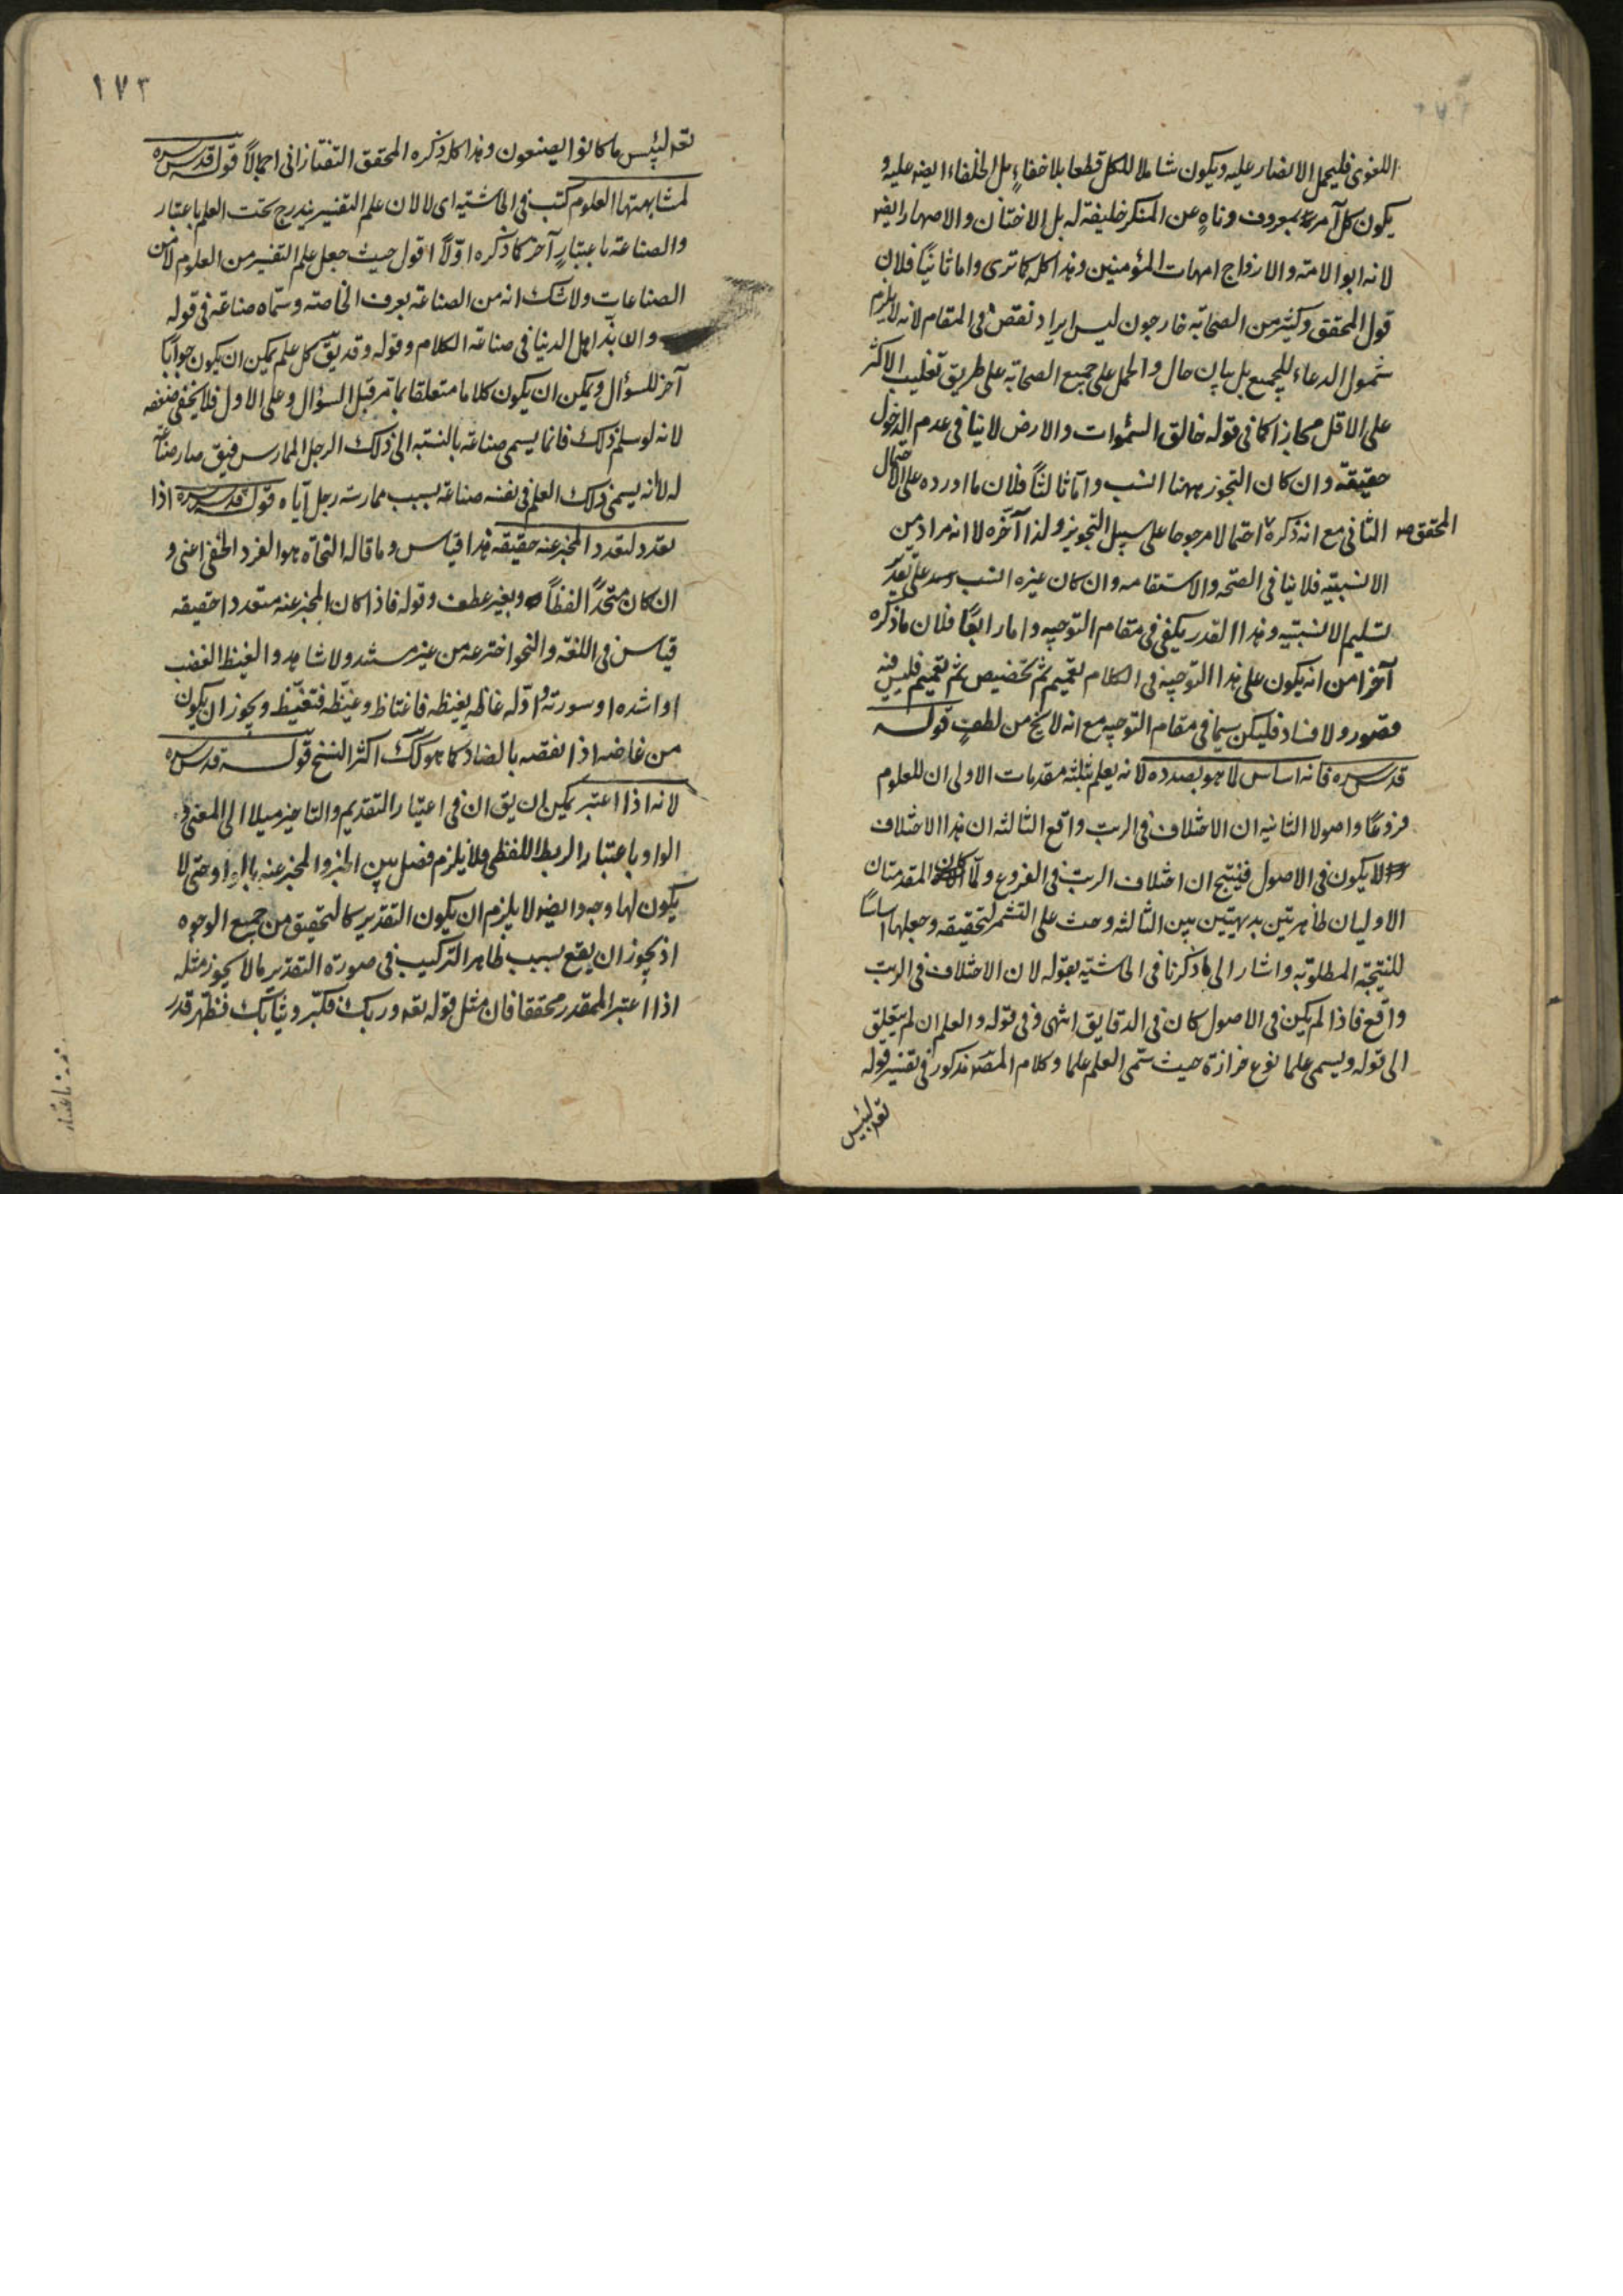 اللغوى فليحمل الانصار عليه ويكون شاملا للكل قطعا بلا خفاء بل الخلفاء ايضه عليه و
يكون كل آمر بمعروف وناهٍ عن المنكر خليفة له بل الاختان والاصهار ايضه
لانه ابو الامة والازواج امهات المؤمنين وهذا كله كما ترى واما ثانيًا فلان
قول المحقق وكثير من الصحابة خارجون ليس ايراد نقض فى المقام لانه لا يلزم
شمول الدعاء للجميع بل بيان حال والحمل على جميع الصحابة على طريق تغليب الاكثر
على الاقل مجازا كما فى قوله خالق السموات والارض لا ينافى عدم الدخول
حقيقة وان كان التجوز ههنا انسب واما ثالثًا فلان ما اورده على الاحتمال
المحقق الثانى مع انه ذكره احتمالا مرجوحا على سبيل التجويز ولذا آخّره لا انه مراد من
الانسبية فلا ينافى الصحة والاستقامه وان كان غيره انسب على تقدير
تسليم الانسبتيه وهذا القدر يكفى فى مقام التوجيه واما رابعًا فلان ما ذكره
آخرا من انه يكون على هذا التوجيه فى الكلام تعميم ثم تخصيص ثم تعميم فليس فيه
قصور ولا فساد فليكن سيما فى مقام التوجيه مع انه لا يخ من لطفٍ قوله
قدس سره فانه اساس لما هو بصدده لانه يعلم بثلثة مقدمات الاولى ان للعلوم
فروعًا واصولا الثانيه ان الاختلاف فى الرتب واقع الثالثه ان هذا الاختلاف
لا يكون فى الاصول فينتج ان اختلاف الرتب فى الفروع ولما كان المقدمتان
الاوليان ظاهرتين بديهيتين بين الثالثه وحث على التشمر لتحقيقه وجعلها اساسًا
للنتيجة المطلوبه واشار الى ما ذكرنا فى الحاشيه بقوله لان الاختلاف فى الرتب
واقع فاذا لم يكن فى الاصول كان فى الدقايق انتهى وفى قوله والعلم ان لم يتعلق
الى قوله ويسمى علما نوع حزازة حيث سمى العلم علما وكلام المصـ مذكور فى تفسير قوله
تعه لبئس
١٧٣
تعه لبئس ما كانوا يصنعون وهذا كله ذكره المحقق التفتازانى اجمالاً قوله قدس سره
لمشابهتها العلوم كتب فى الحاشيه اى لا لان علم التفسير يندرج تحت العلم باعتبار
والصناعة باعتبارٍ آخر كما ذكره اوّلاً اقول حيث جعل علم التفسير من العلوم لا من
الصناعات ولا شك انه من الصناعة بعرف الخاصه وسمّاه صناعة فى قوله
وان بذ اهل الدنيا فى صناعة الكلام وقوله وقد يقّ كل علم يمكن ان يكون جوابًا
آخر للسؤال ويمكن ان يكون كلاما متعلقا بما مرّ قبل السؤال وعلى الاول فلا يخفى ضعفه
لانه لو سلم ذلك فانما يسمى صناعة بالنسبه الى ذلك الرجل الممارس فيق صار صناعة
له لا انه يسمى ذلك العلم فى نفسه صناعة بسبب ممارسة رجل اياه قوله قدس سره اذا
تعدد لتعدد المخبر عنه حقيقه هذا قياس وما قاله النحاة هو الفرد الخفى اعنى و
ان كان متحدًّا لفظاً وبغير عطف وقوله فاذا كان المخبر عنه متعددا حقيقه
قياس فى اللغة والنحو اخترعه من غير مسند ولا شاهد والغيظ الغضب
او اشده او سورته واوّله غاظه يغيظه فاغتاظ وغيّظه فتغيّظ ويجوز ان يكون
من غاضه اذا نقصه بالضاد كما هو كك اكثر النسخ قوله قدس سره
لانه اذا اعتبر يمكن ان يق ان فى اعتبار التقديم والتاخير ميلا الى المعنى و
الواو باعتبار الربط اللفظى فلا يلزم فصل بين الخبر والمخبر عنه بالواو حتى لا
يكون لها وجه وايضه لا يلزم ان يكون التقدير كالتحقيق من جميع الوجوه
اذ يجوز ان يقع بسبب ظاهر التركيب فى صورة التقدير مالا يجوز مثله
اذا اعتبر المقدر محققا فان مثل قوله تعه وربك فكبّر وثيابك فطهر قدر